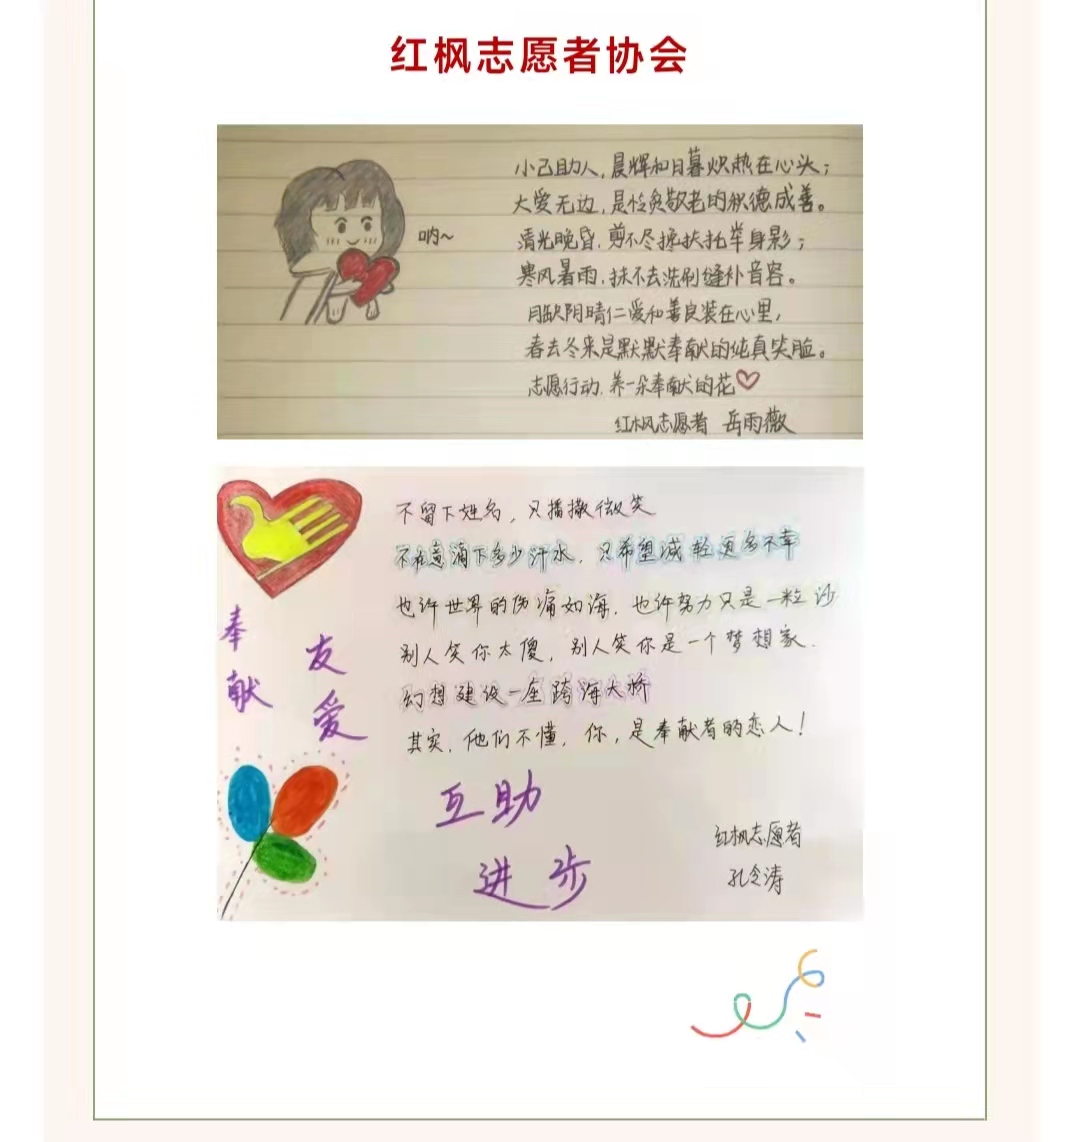 红枫志愿者协会
呐~
小己助人,晨辉和日暮炽热在心头;
大爱无边,是怜贫敬老的积德成善。
清光晚昏,剪不尽搀扶托举身影;
寒风暑雨,抹不去洗刷缝补音容。
月缺阴晴仁爱和善良装在心里,
春去冬来是默默奉献的纯真笑脸。
志愿行动,养一朵奉献的花
红枫志愿者 岳雨薇
不留下姓名,只播撒微笑
不在意滴下多少汗水,只希望减轻更多不幸
也许世界的伤痛如海,也许努力只是一粒沙
别人笑你太傻,别人笑你是一个梦想家.
幻想建设一座跨海大桥
其实,他们不懂,你,是奉献者的恋人!
奉献
友爱
互助
进步
红枫志愿者
孔令涛